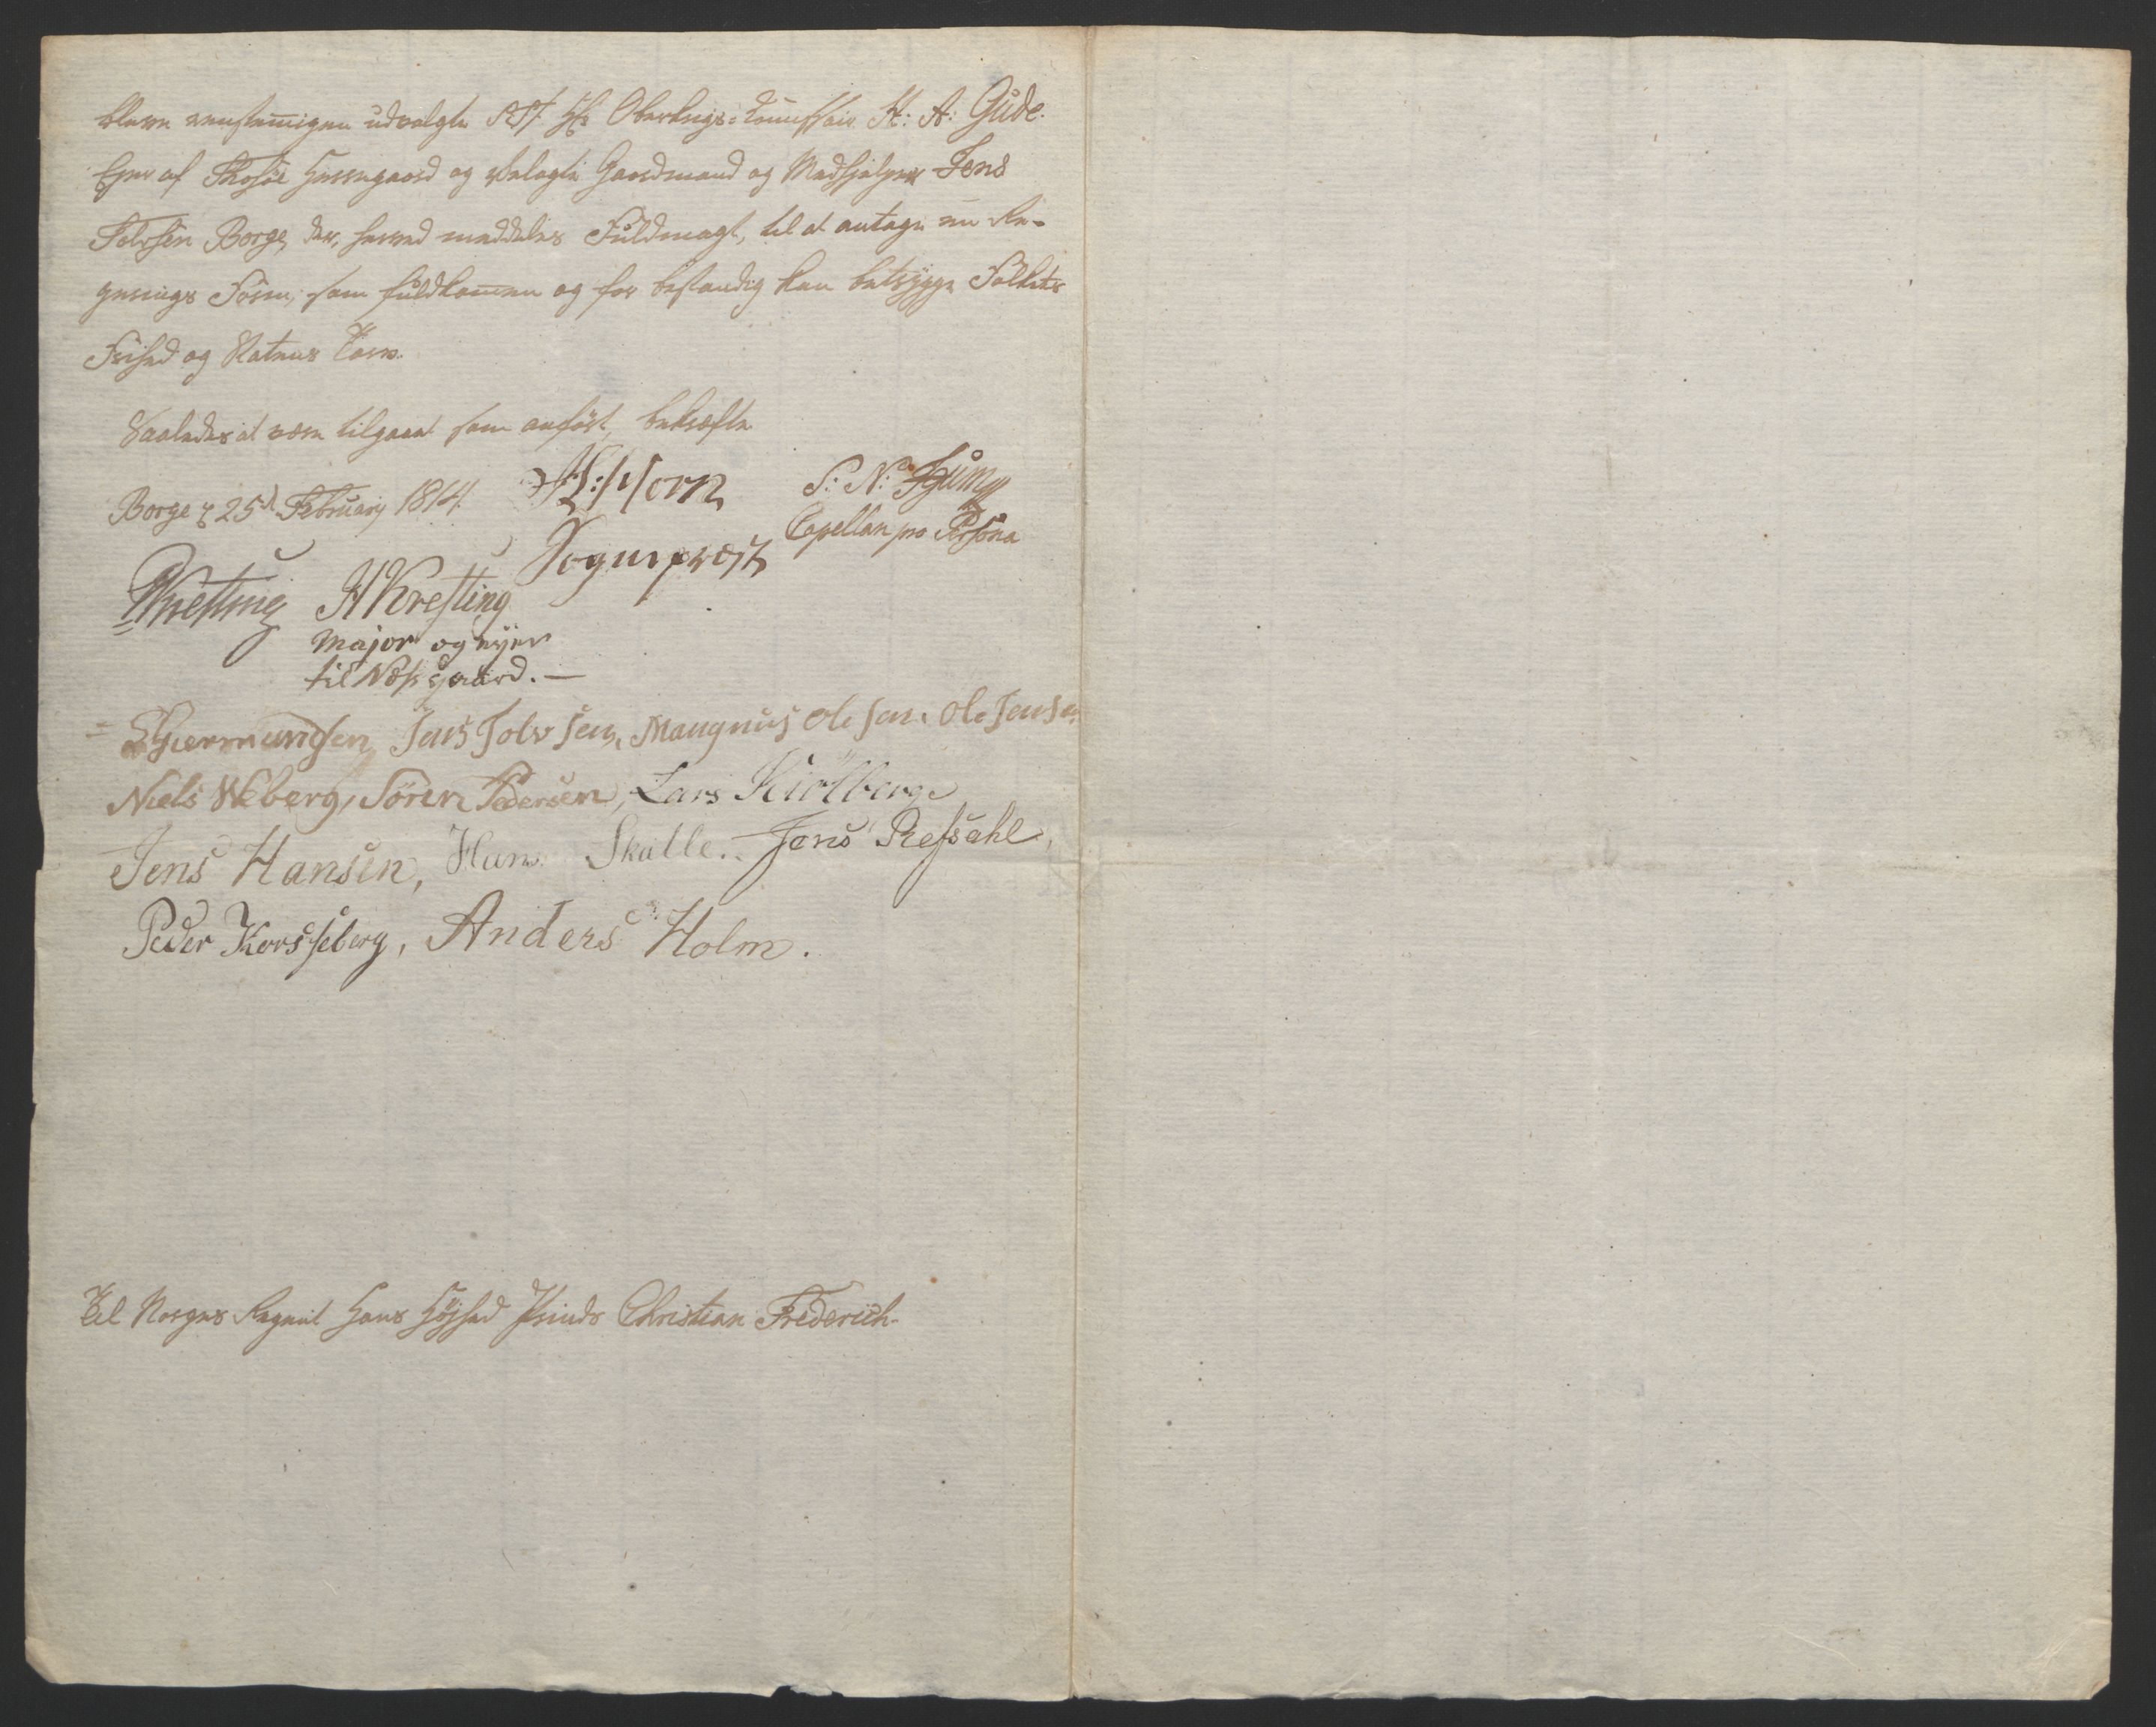 bleve eenstemigen udvalgte S.T. Hr Oberkrigs-Commissair H: A: Gude.
Ejer af Thosöe Herregaard og Gaardmand og Medhjelper Jens
Tolvsen Borge, der, herved meddeles Fuldmagt, til at antage en Re-
gerings Form, som fuldkommen og for bestandig kan betrygge Folkets
Frihed og Statens Tarv.
Saaledes at være tilgaaet som anført, bekræfte
Borge 25d Februarj 1814.
Horn
Sognepræst
S: N:
Capellan pro Persona
Wresting
H Kresting
Major og eyer
til Næs gaard.—
Giermundsen, Jens Tolvsen, Mangnus Olesen. Ole Jensen
Niels Weberg, Sören Pedersen, Lars Kiölberge
Jens Hansen, Hans Skatle.. Jens Refsahl,
Peder Korsseberg, Anders Holm.
Til Norges Regent Hans Höjhed Prinds Christian Frederich.